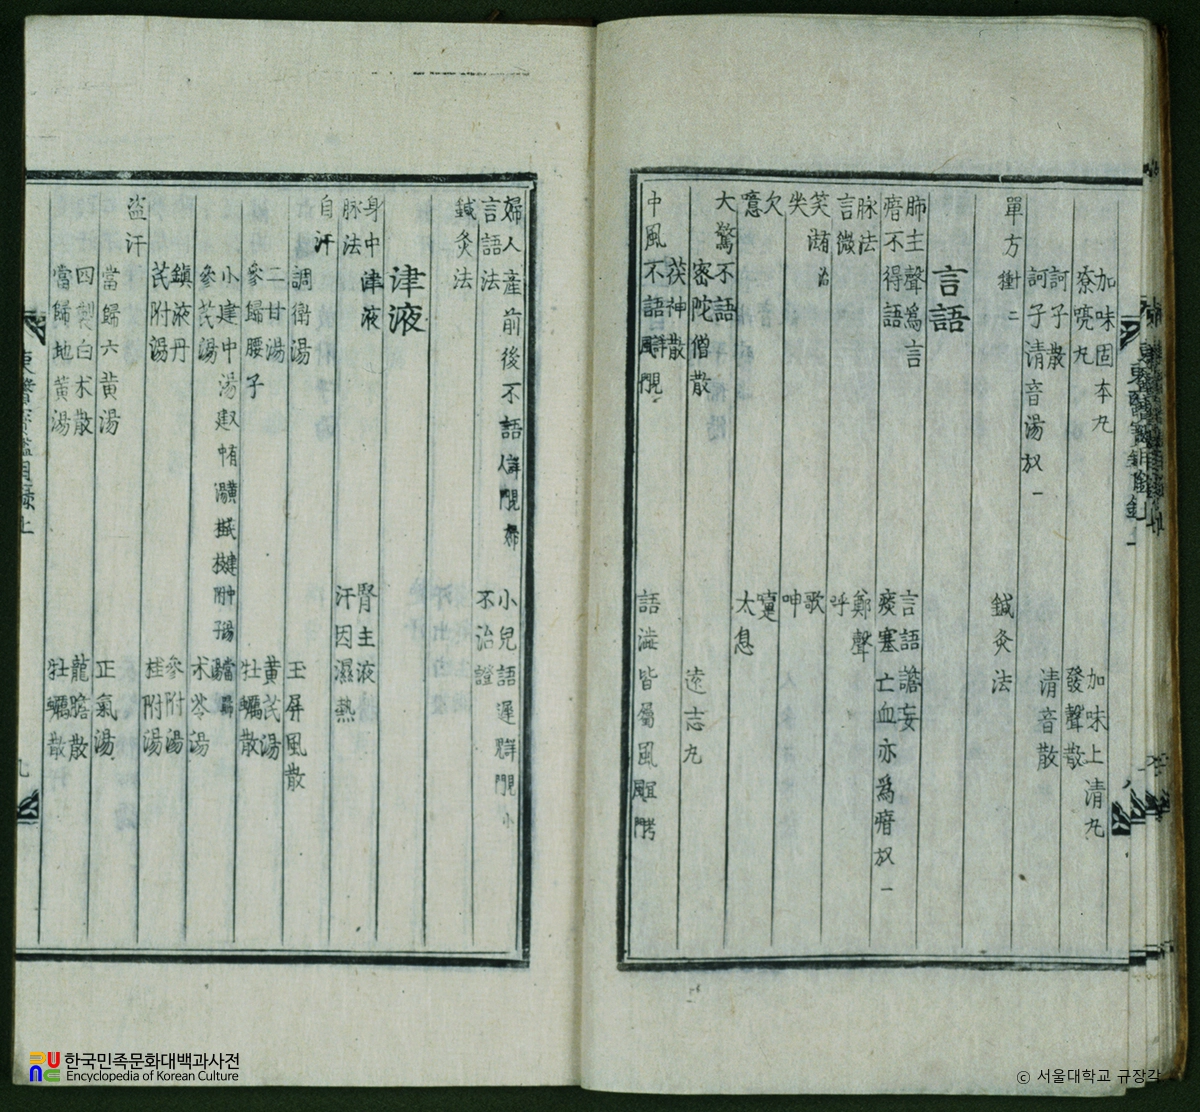 加味固本丸
加味上清丸
嘹喨丸
發聲散
訶子散
清音散
訶子清音湯
單方
鍼灸法
言語
肺主聲爲言
言語譫妄
瘖不得語
痰塞亡血亦爲瘖
脉法
鄭聲
言微
呼
笑
歌
呻
欠
嚔
噫
太息
大驚不語
密陀僧散
遠志丸
茯神散
中風不語
語澁皆屬風
婦人産前後不語
小兒語遲
言語法
不治證
鍼灸法
津液
身中津液
腎主液
脉法
汗因濕熱
自汗
調衛湯
玉屛風散
二甘湯
黄芪湯
參歸腰子
牡蠣散
小建中湯
參芪湯
朮苓湯
鎮液丹
參附湯
芪附湯
桂附湯
盗汗
當歸六黄湯
正氣湯
四製白朮散
龍膽散
當歸地黄湯
牡蠣散
한국민족문화대백과사전
Encyclopedia of Korean Culture
© 서울대학교 규장각